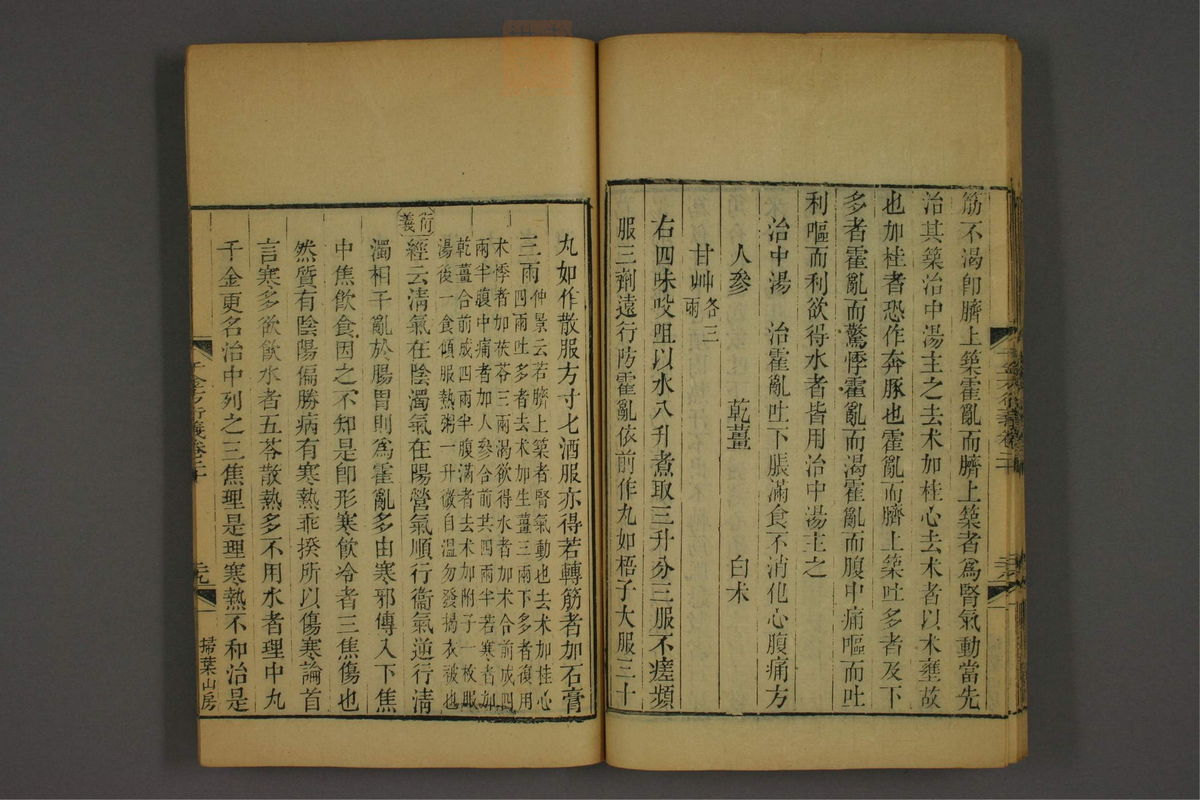 筋不渴卽臍上築霍亂而臍上築者爲腎氣動當先
治其築治中湯主之去术加桂心去术者以术壅故
也加桂者恐作奔豚也霍亂而臍上築吐多者及下
多者霍亂而驚悸霍亂而渴霍亂而腹中痛嘔而吐
利嘔而利欲得水者皆用治中湯主之
治中湯 治霍亂吐下脹滿食不消化心腹痛方
人參 乾薑 白术
甘艸各三兩
右四味㕮咀以水八升煮取三升分三服不瘥頻
服三劑遠行防霍亂依前作丸如梧子大服三十
丸如作散服方寸匕酒服亦得若轉筋者加石膏
三兩仲景云若臍上築者腎氣動也去术加桂心
四兩吐多者去术加生薑三兩下多者復用
术悸者加茯苓三兩渴欲得水者加术合前成四
兩半腹中痛者加人參合前共四兩半若寒者加
乾薑合前成四兩半腹滿者去术加附子一枚服
湯後一食傾服熱粥一升微自溫勿發揭衣被也
衍義
經云淸氣在陰濁氣在陽營氣順行衞氣逆行淸
濁相干亂於腸胃則爲霍亂多由寒邪傳入下焦
中焦飮食因之不知是卽形寒飮冷者三焦傷也
然質有陰陽偏勝病有寒熱乖揆所以傷寒論首
言寒多欲飮水者五苓散熱多不用水者理中丸
千金更名治中列之三焦理是理寒熱不和治是
千金方衍義卷二十
掃葉山房